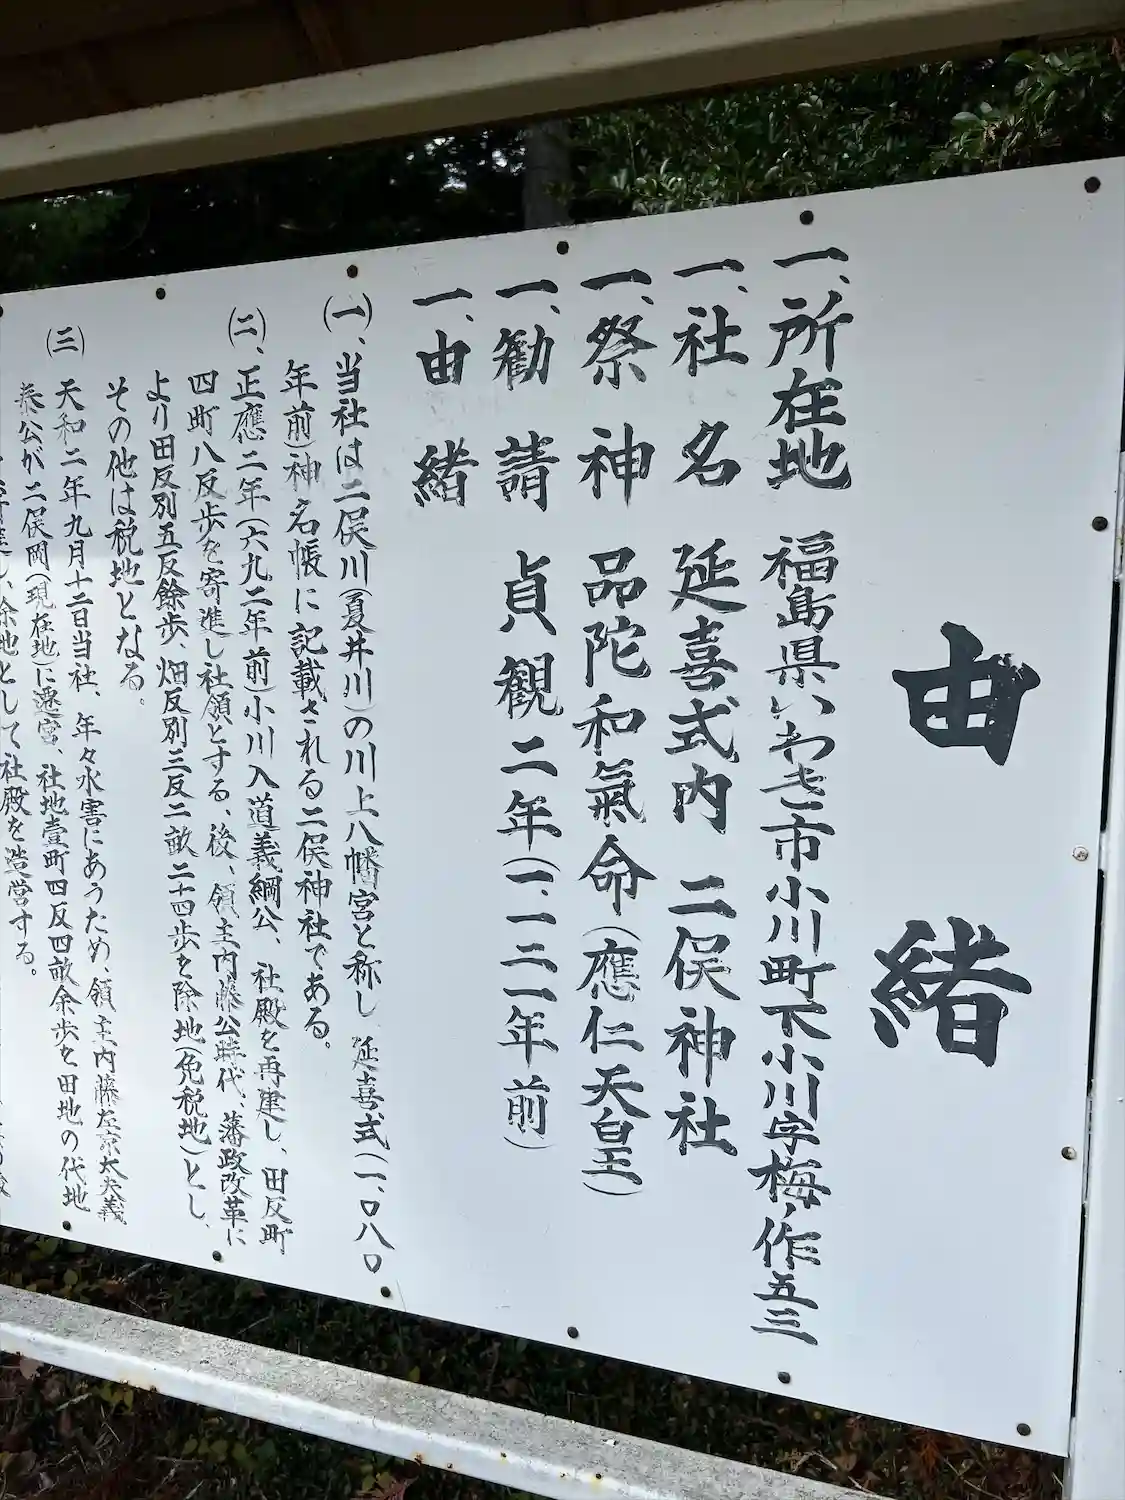 由緒
一、所在地 福島県いわき市小川町下小川字梅ノ作五三
一、社名 延喜式内 二俣神社
一、祭神 品陀和氣命(應仁天皇)
一、勧請 貞観二年(一、一三一年前)
一、由緒
(一)、当社は二俣川(夏井川)の川上八幡宮と称し 延喜式(一、〇八〇
年前)神名帳に記載される二俣神社である。
(二)、正應二年(六九二年前)小川入道義綱公、社殿を再建し、田反町
四町八反歩を寄進し社領とする、後、領主内藤公時代、藩政改革に
より田反別五反餘歩、畑反別三反二畝二十四歩を除地(免税地)とし、
その他は税地となる。
(三) 天和二年九月十二日当社、年々水害にあうため、領主内藤左京太夫義
泰公が二俣岡(現在地)に遷宮、社地壹町四反四畝余歩を田地の代地
余地として社殿を造営する。